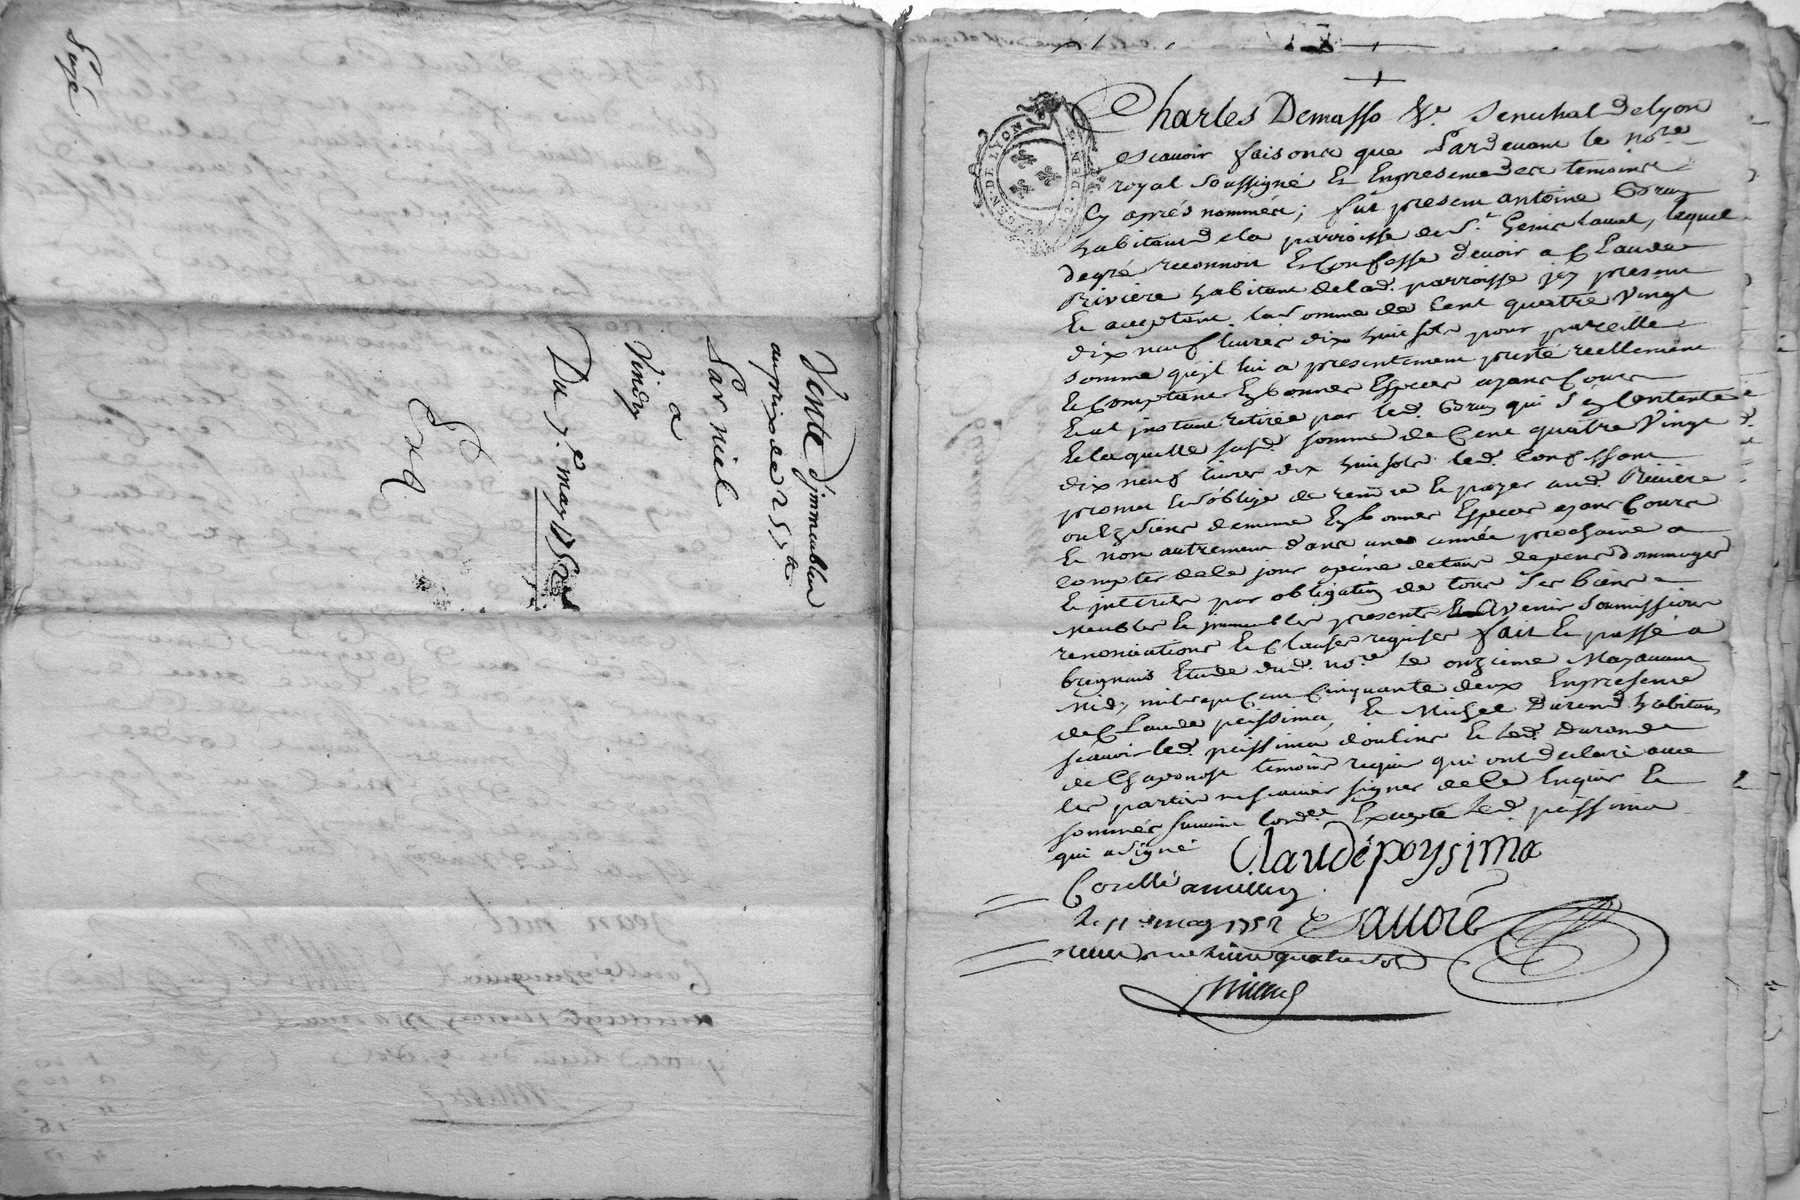 Payé
Vente d'immeubles
au prix de 25 ₶
Par niel
a
Vindry
Du 7.e may 1752
Exp
GEN. DE LYON
Charles Demasso &c. Senechal de lyon
scavoir faisons que Pardevant le no.re
royal soussigné Et En presence des temoins
Cy aprés nommés; fut present antoine Brun
habitant de la parroisse de S.t Genis laval, lequel
de gré reconnoit Et Confesse devoir a Claude
Riviere habitant de lad. parroisse icy present
Et acceptant la somme de Cent quatre Vingt
dix neuf livres dix huit sols pour pareille
somme qu'il lui a presentement presté reellement
Et Comptant En bonnes Especes ayant Cours
Et a l'instant retirée par led. Brun qui s'en Contente
Et laquelle susd. somme de Cent quatre Vingt
dix neuf livres dix huit sols led. Confessant
promet Et s'oblige de rendre Et payer aud. Riviere
ou es siens de meme En bonnes Especes ayant Cours
Et non autrement dans une année prochaine a
compter de ce jour a peine de tous depens dommages
Et interets par obligation de tous ses biens
Meubles Et immeubles presents Et Avenir soumissions
renonciations Et Clauses requises fait Et passé a
brignais Etude dud. no.re le onzieme May avant
Midy mil sept Cent Cinquante deux En presence
de Claude peissima, Et Michel Durand habitans
scavoir led. peissima d'oulins Et led. Durand
de Chaponost temoins requis qui ont declaré avec
les parties ne scavoir signer de Ce Enquis Et
sommés suivant l'ord.ce Excepté led. peissima
qui a signé
Claude poysima
Conllé a millery
le 11.e may 1752
Savoré